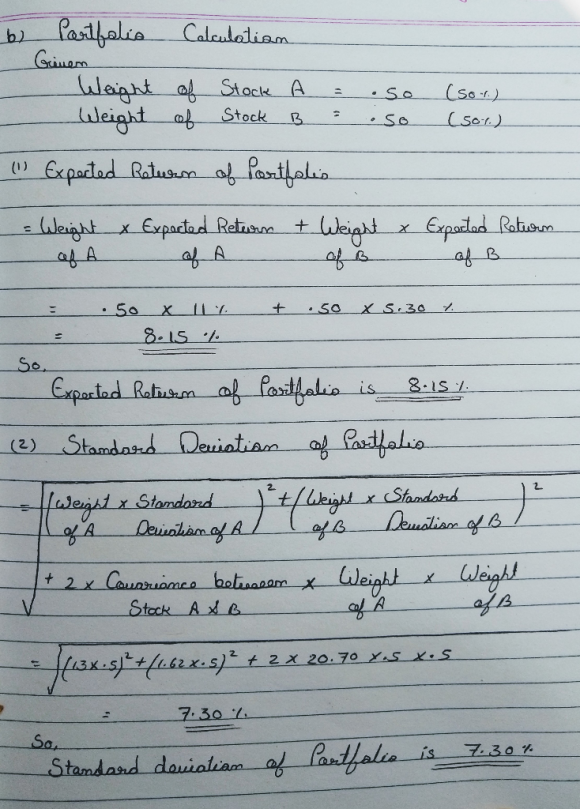 b) Portfolio Calculation
Given
Weight of Stock A = .50 (50%)
Weight of Stock B = .50 (50%)
(1) Expected Return of Portfolio
= Weight × Expected Return + Weight × Expected Return
of A of A of B of B
= .50 × 11% + .50 × 5.30 %
= 8.15 %
So,
Expected Return of Portfolio is 8.15%.
(2) Standard Deviation of Portfolio
= √ (Weight × Standard )² + (Weight × Standard )²
of A Deviation of A of B Deviation of B
+ 2 × Covariance between × Weight × Weight
Stock A & B of A of B
= √(13×.5)² + (1.62×.5)² + 2 × 20.70 × .5 × .5
= 7.30 %.
So,
Standard deviation of Portfolio is 7.30%